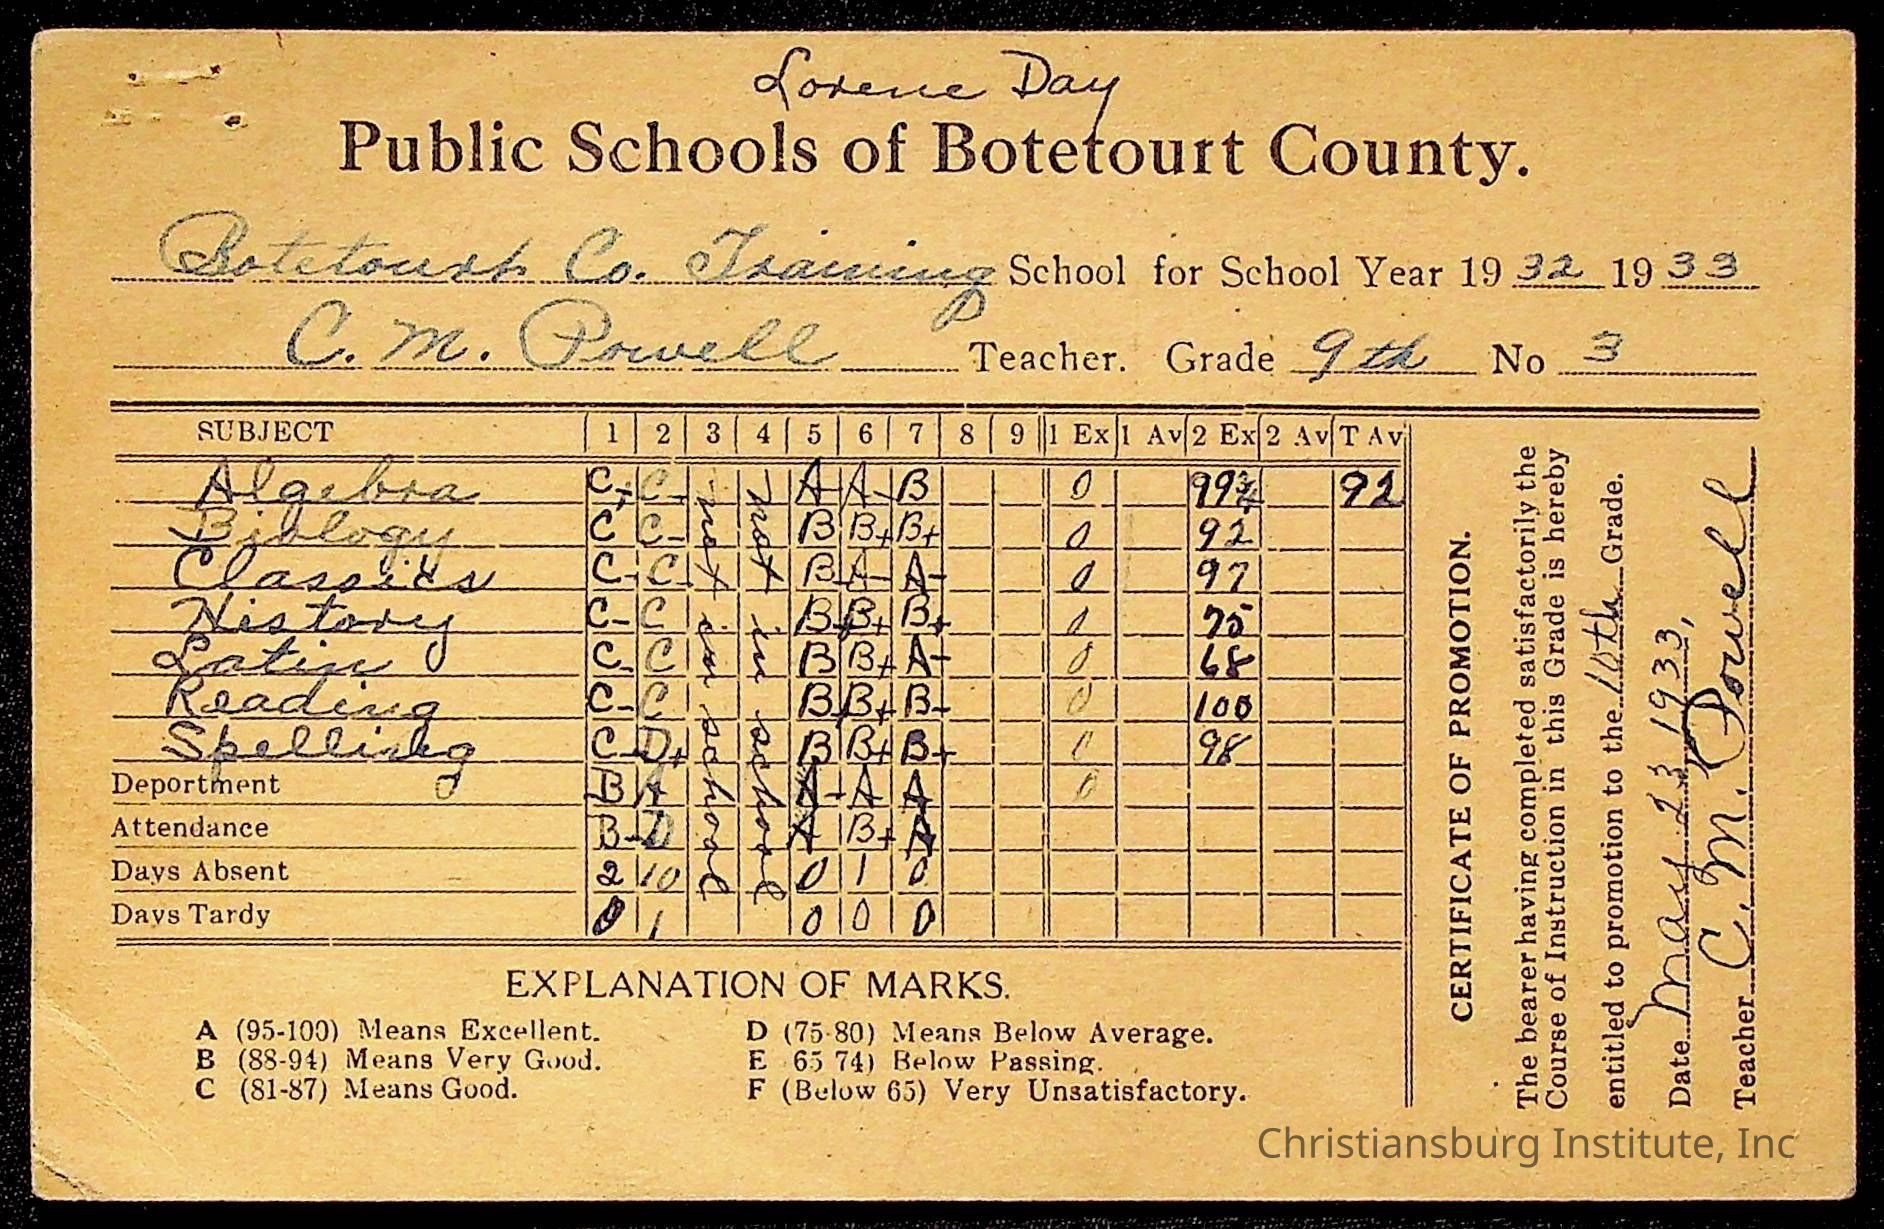 Lorene Day
Public Schools of Botetourt County.
Botetourt Co. Training School for School Year 19 32 19 33
C. M. Powell Teacher. Grade 9th No 3
SUBJECT 1 2 3 4 5 6 7 8 9 1 Ex 1 Av 2 Ex 2 Av T Av
Algebra C+ C- not not A A- B 0 99 92
Biology C C- B B+ B+ 0 92
Classics C- C- B- A- A- 0 97
History C- C in in B+ B+ B+ 0 75
Latin C- C B B+ A- 0 68
Reading C- C B+ B+ B- 0 100
Spelling C- D+ school school B B+ B+ 0 98
Department B A A- A A 0
Attendance B- D A B+ A
Days Absent 2 10 0 1 0
Days Tardy 0 1 0 0 0
EXPLANATION OF MARKS.
A (95-100) Means Excellent.
B (88-94) Means Very Good.
C (81-87) Means Good.
D (75-80) Means Below Average.
E 65 74) Below Passing.
F (Below 65) Very Unsatisfactory.
CERTIFICATE OF PROMOTION.
The bearer having completed satisfactorily the
Course of Instruction in this Grade is hereby
entitled to promotion to the 10th Grade.
Date May 23 1933,
Teacher C. M. Powell
Christiansburg Institute, Inc